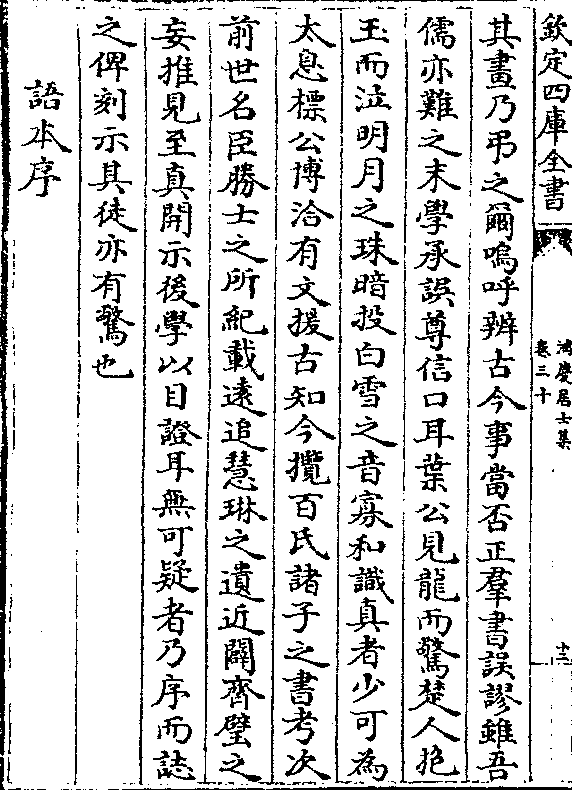 欽定四庫全書
鴻慶居士集
卷三十
十三
其畫乃弔之爾嗚呼辨古今事當否正羣書誤謬雖吾
儒亦難之末學承誤尊信口耳葉公見龍而驚楚人抱
玉而泣明月之珠暗投白雪之音寡和識真者少可為
太息標公博洽有文援古知今攬百氏諸子之書考次
前世名臣勝士之所紀載逺追慧琳之遺近闢齊璧之
妄推見至真開示後學以目證耳無可疑者乃序而誌
之俾刻示其徒亦有驚也
語本序